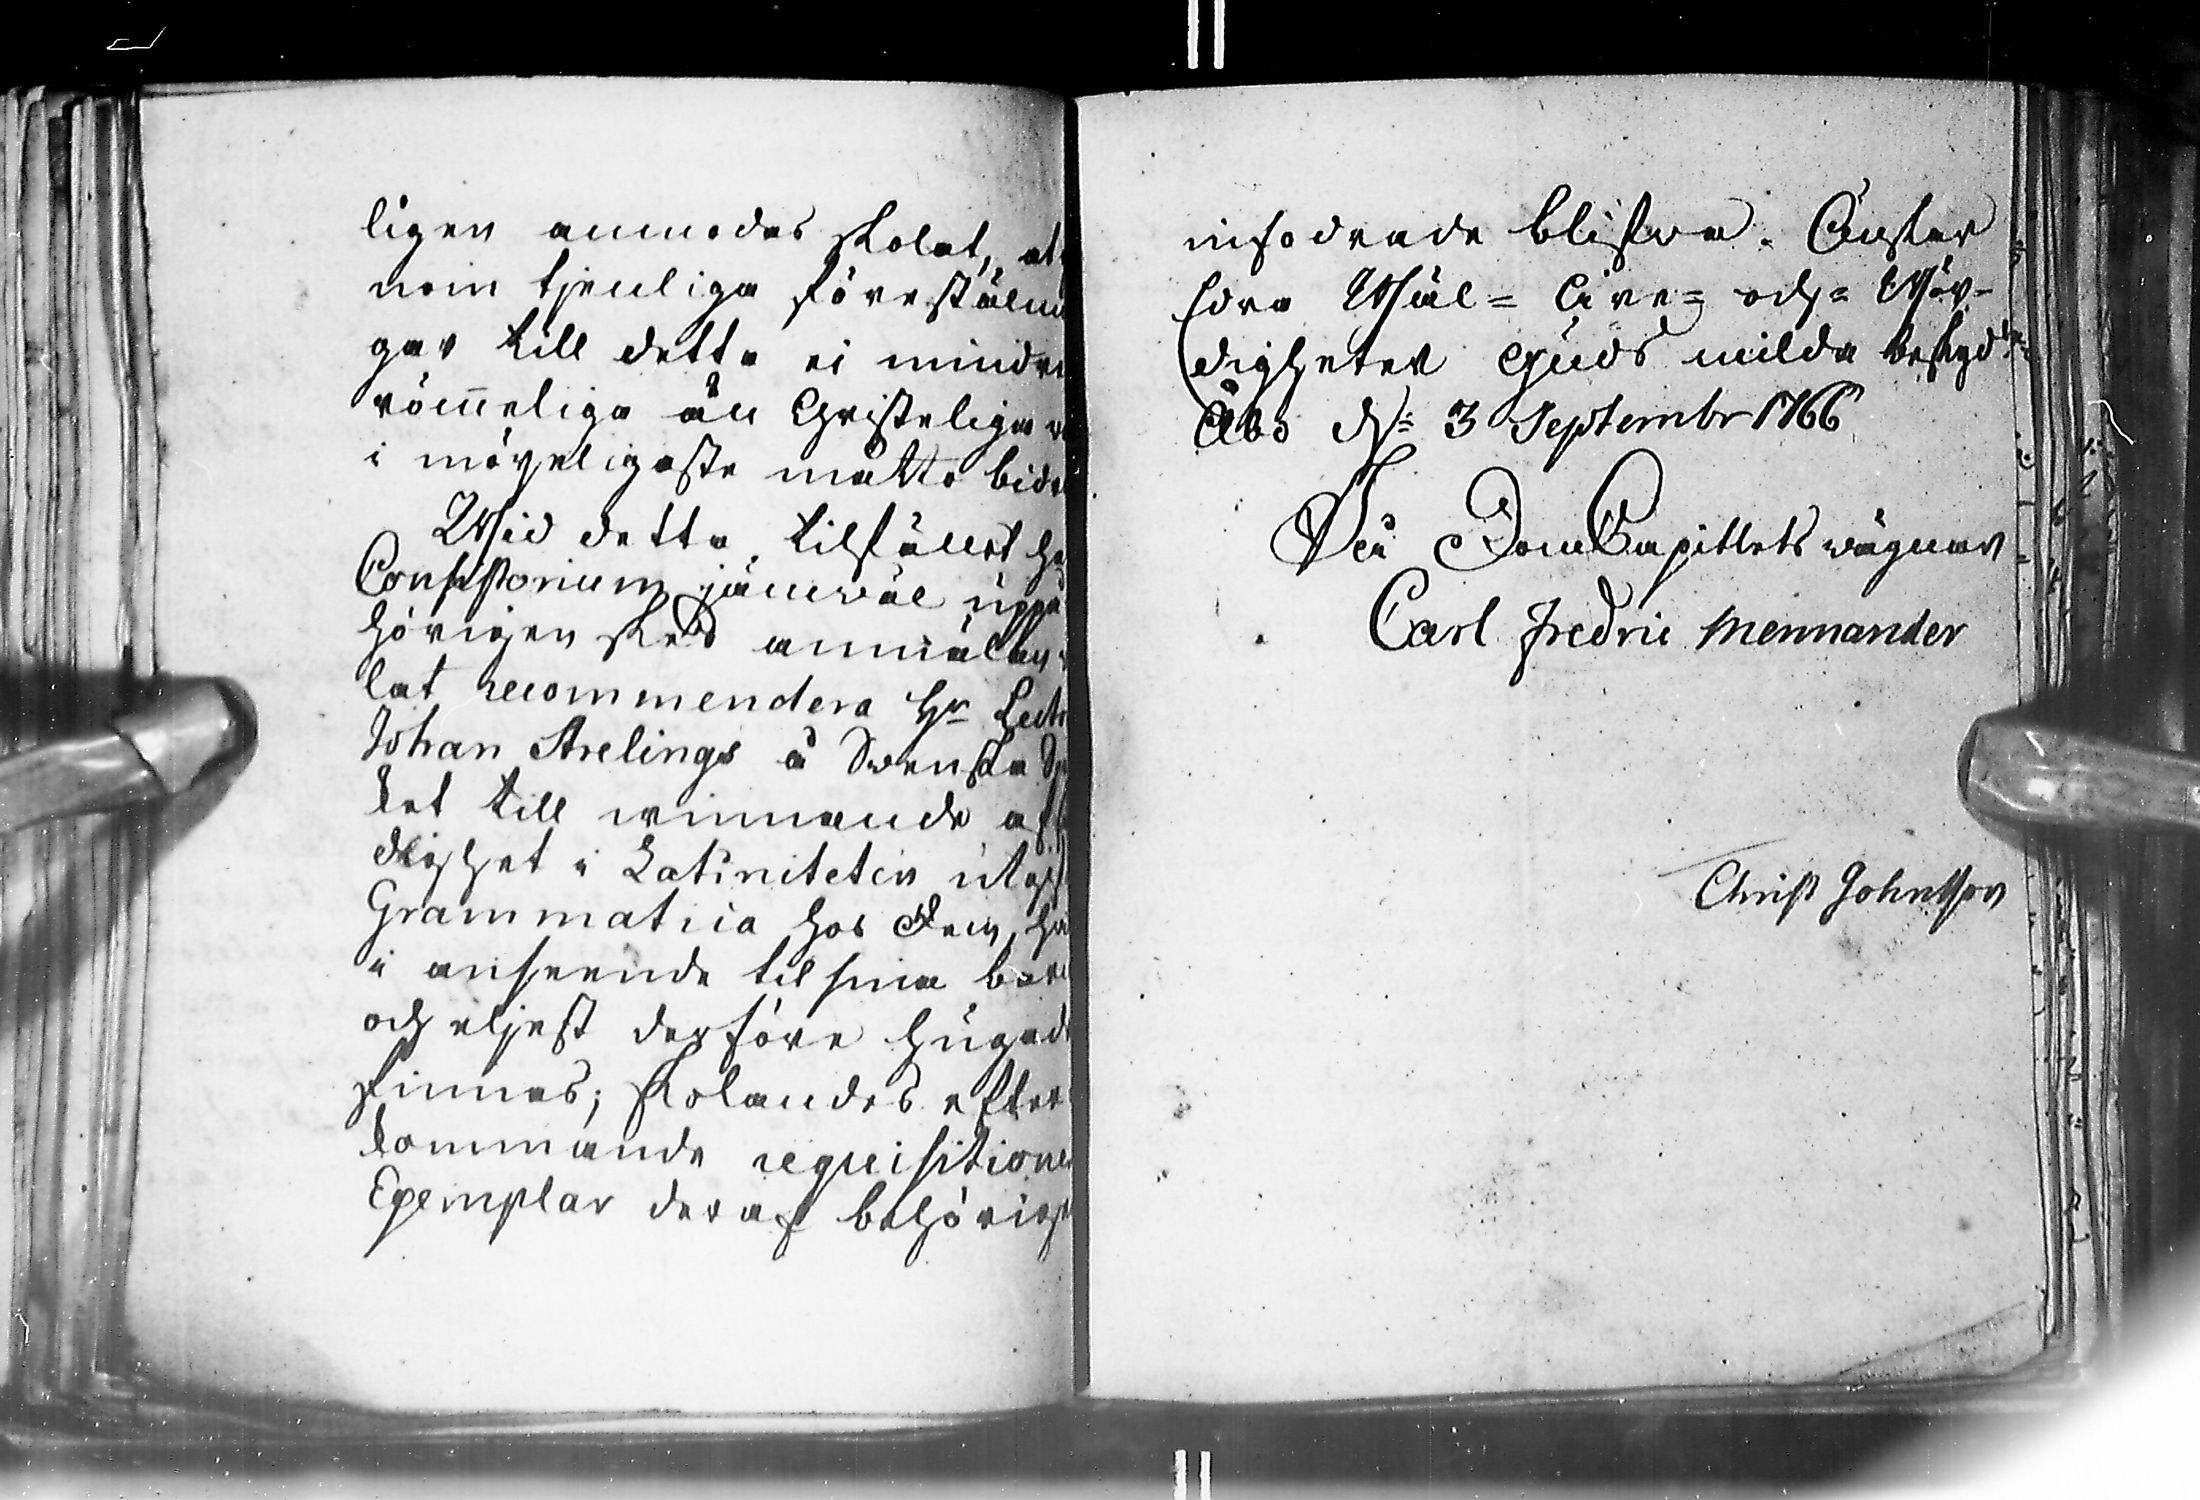 ligen anmodas skolat, at
nom tjenliga föreställni
gar till detta ei mindre
römmeliga än Christeliga
i möyeligaste måtto bidr
Wid detta tilfället ha
Consistorium jämwäl uppå
hörigen sked anmälan
lat recommendera Hr Lect
Johan Strelings å Swenska Sp
ket till winnande af
dighet i Latiniteten utgif
Grammatica hos dem, hw
i anseende til sina barn
och eljest derföre hugade
finnas; skolandes efter
kommande requisitioner
Exemplar deraf behörigen
infodrade blifwa. Önskar
Edra Wäl= Äre= och= Wör-
digheter Guds milda beskydd
Åbo d. 3 Septembr 1766
På DomCapitlets wägnar
Carl Fredric Mennander
Christ Johnsson